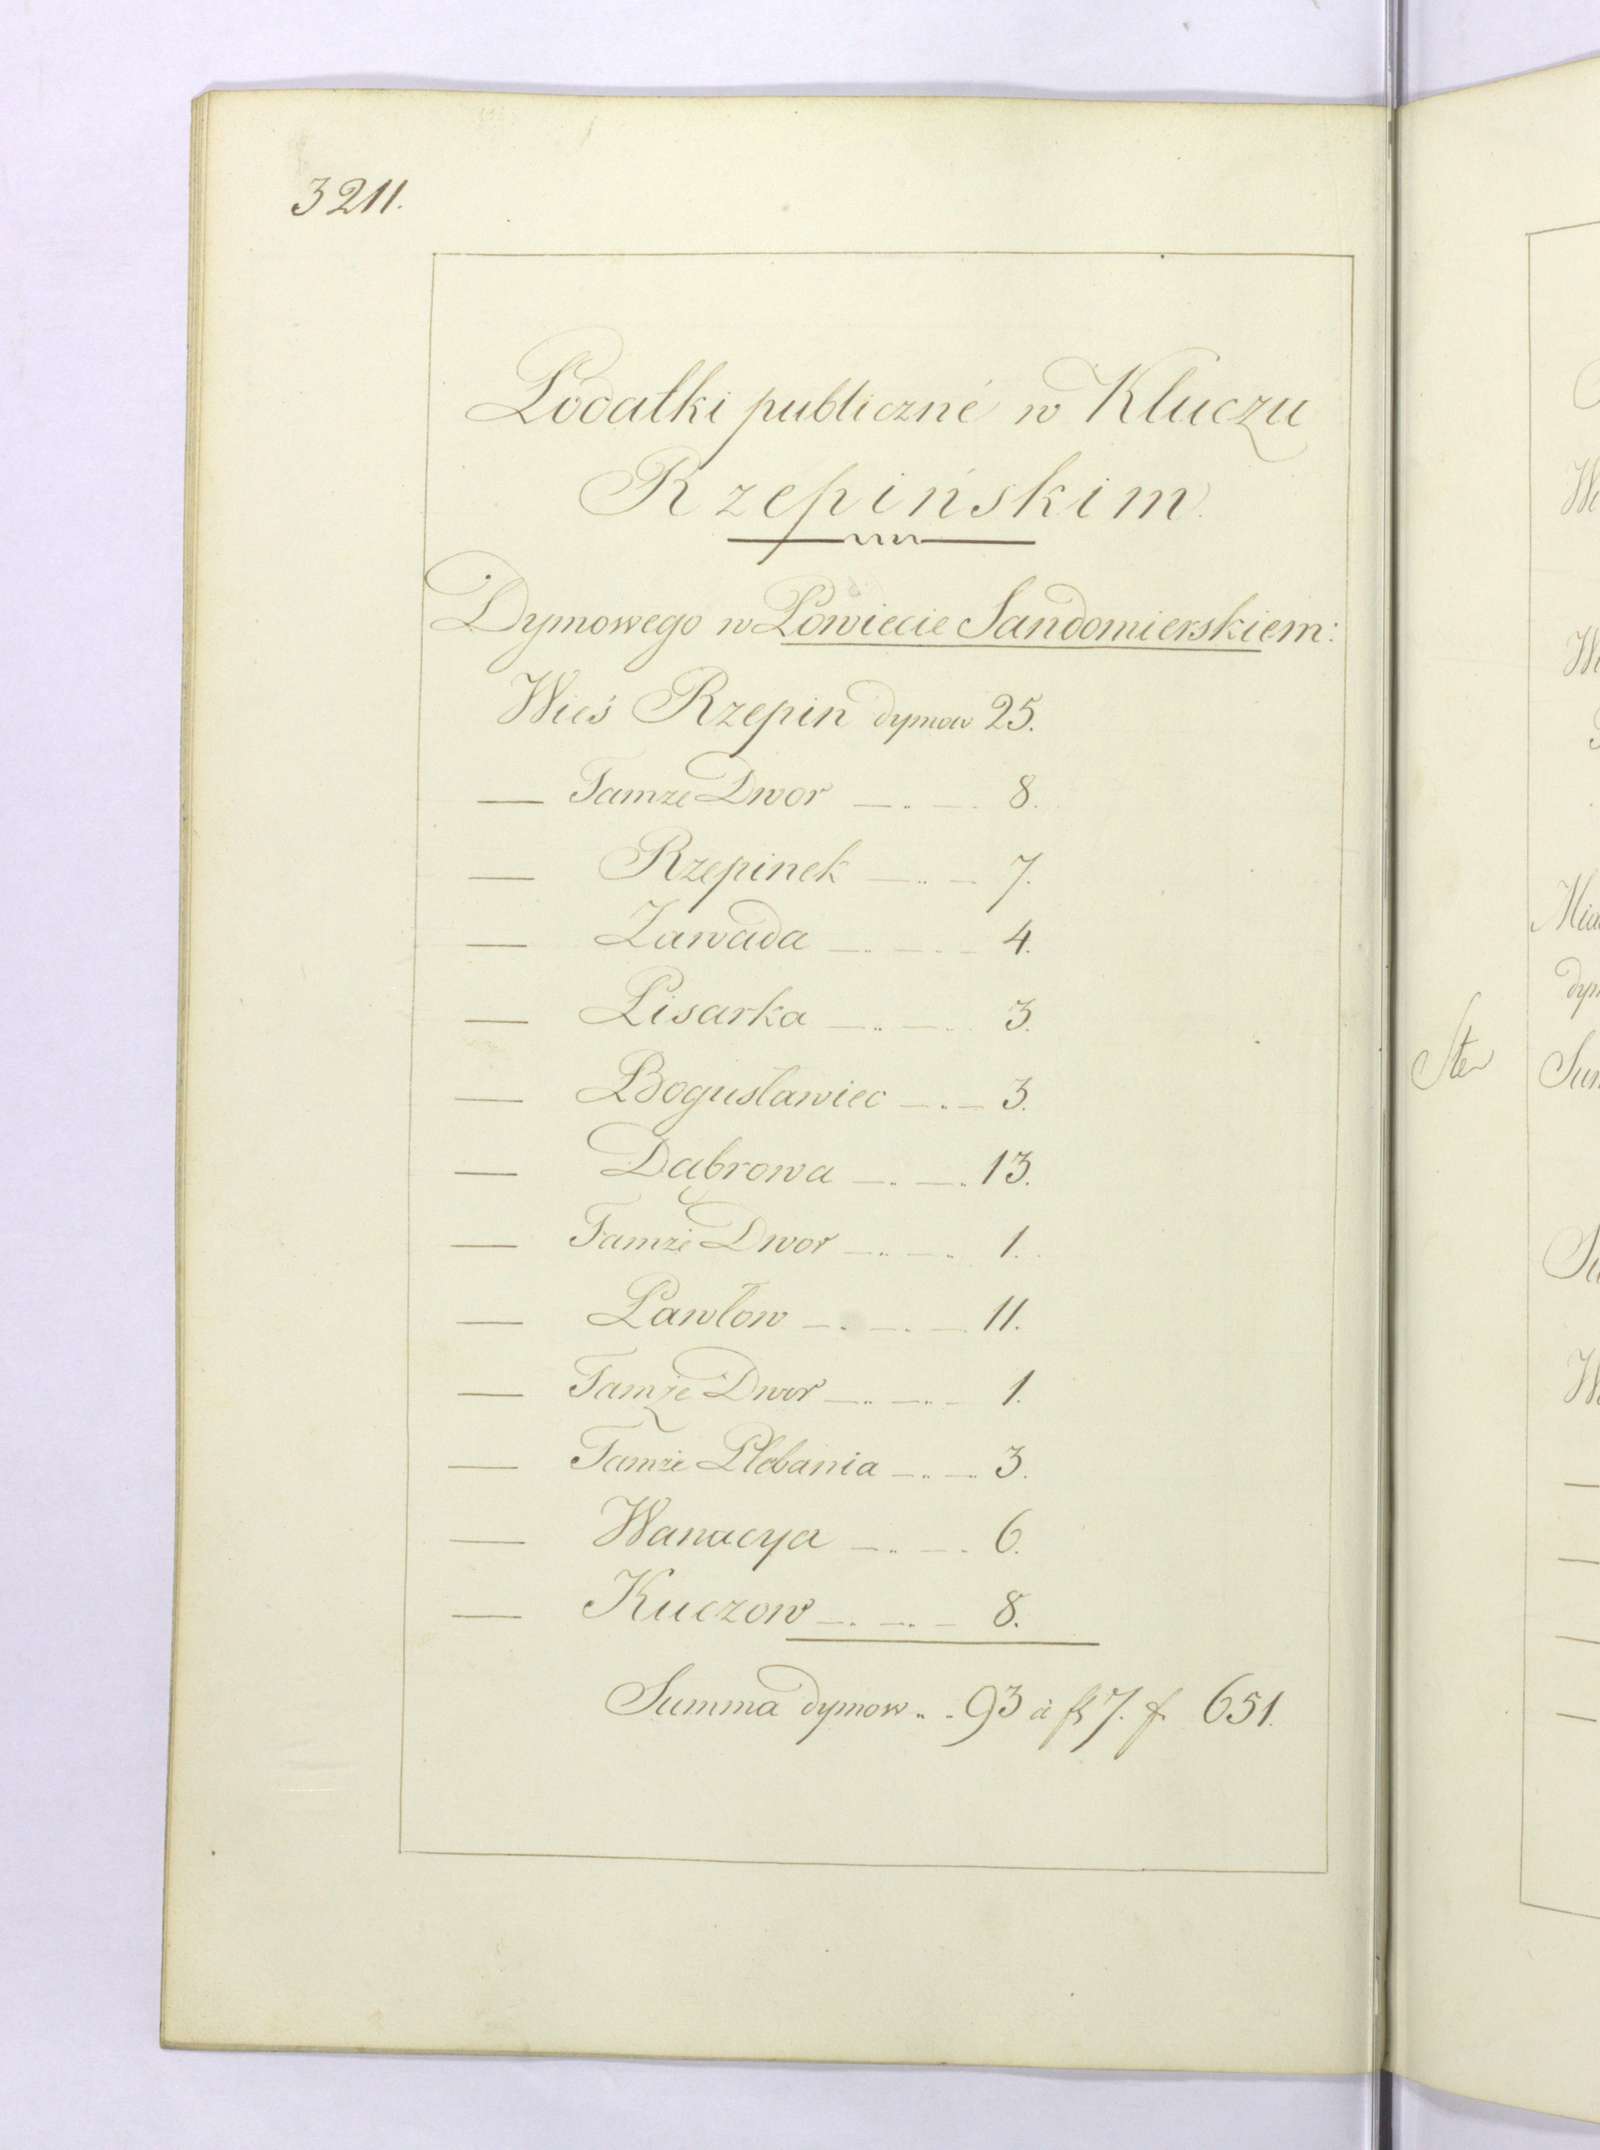 3211.
Podatki publiczné w Kluczu
Rzepińskim
Dymowego w Powiecie Sandomierskiem:
Wieś Rzepin dymow 25.
— Tamże Dwor — . — . 8.
— Rzepinek — .. — 7.
— Zawada — . — . — 4.
— Pisarka — .. — . 3.
— Bogusławiec — . — 3.
— Dąbrowa — . — . 13.
— Tamże Dwor — .. — . 1.
— Pawłow — . — . — 11.
— Tamże Dwor — .. — .. — 1.
— Tamże Plebania — .. — . 3.
— Wanacya — .. — . 6.
— Kuczow — . — .. — 8.
Summa dymow .. . 93 à fl 7. f. 651.
Ste